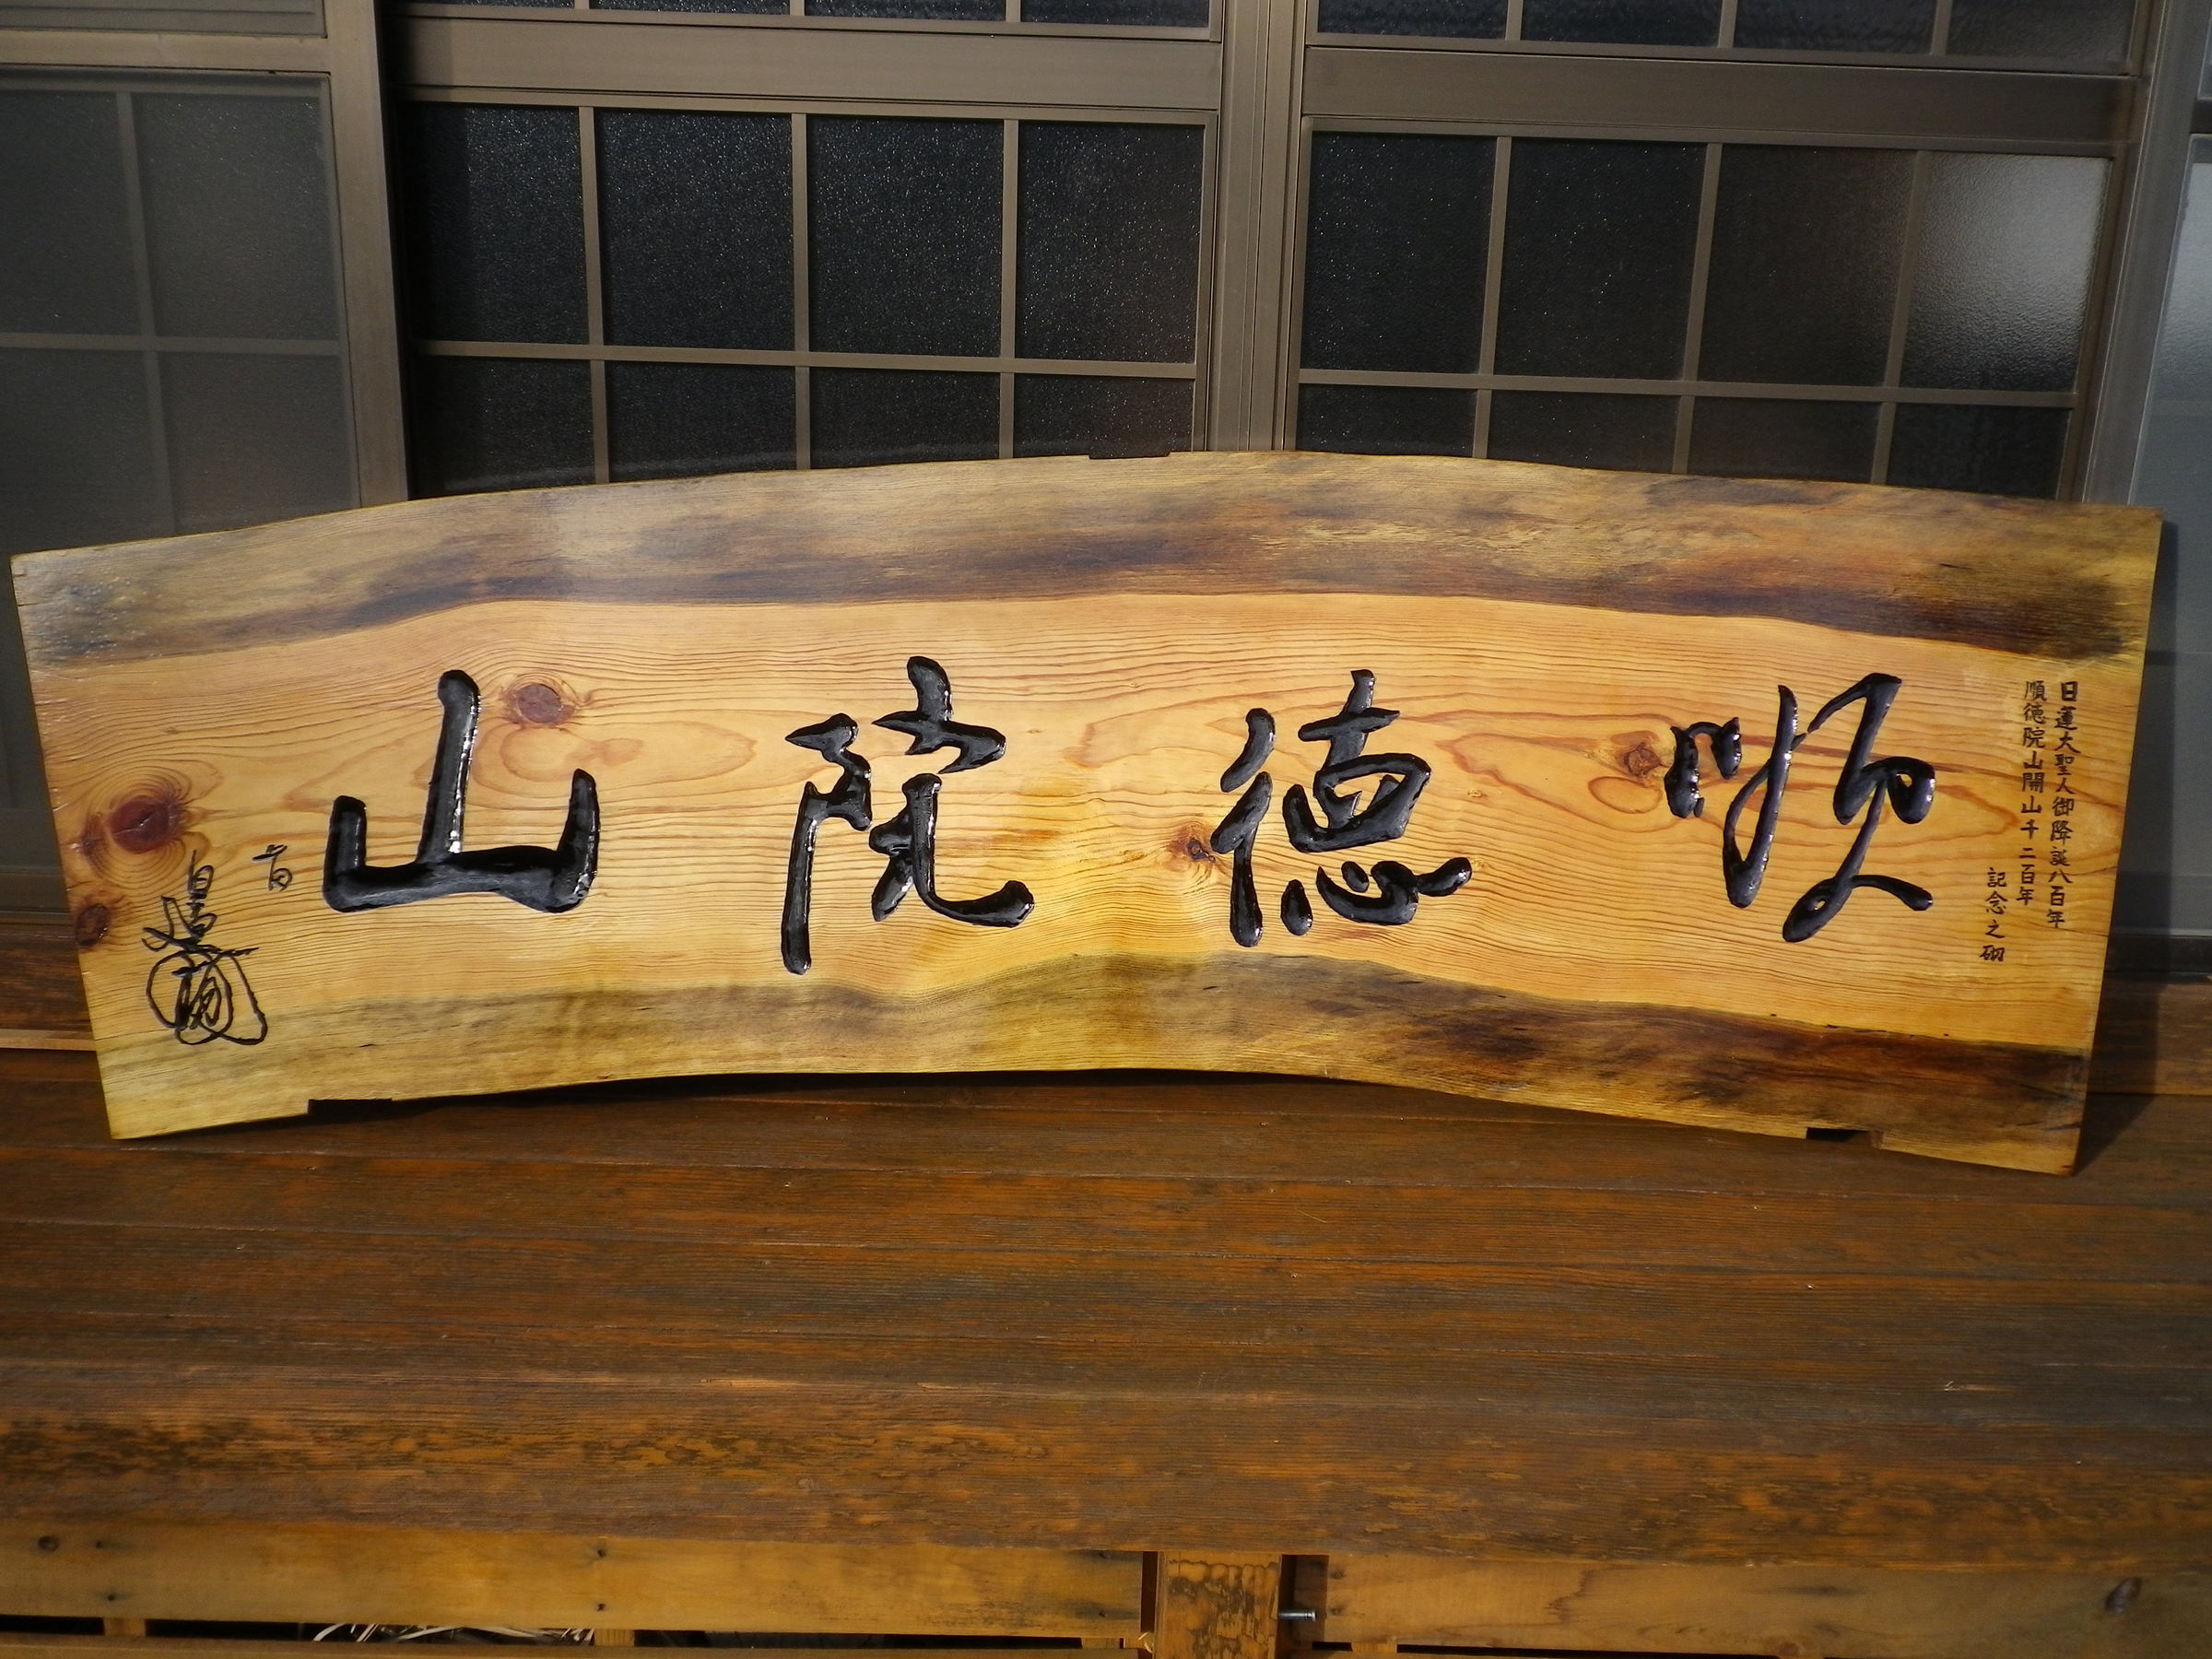 日蓮大聖人御降誕八百年
順徳院山開山千二百年
記念之砌
順徳院山